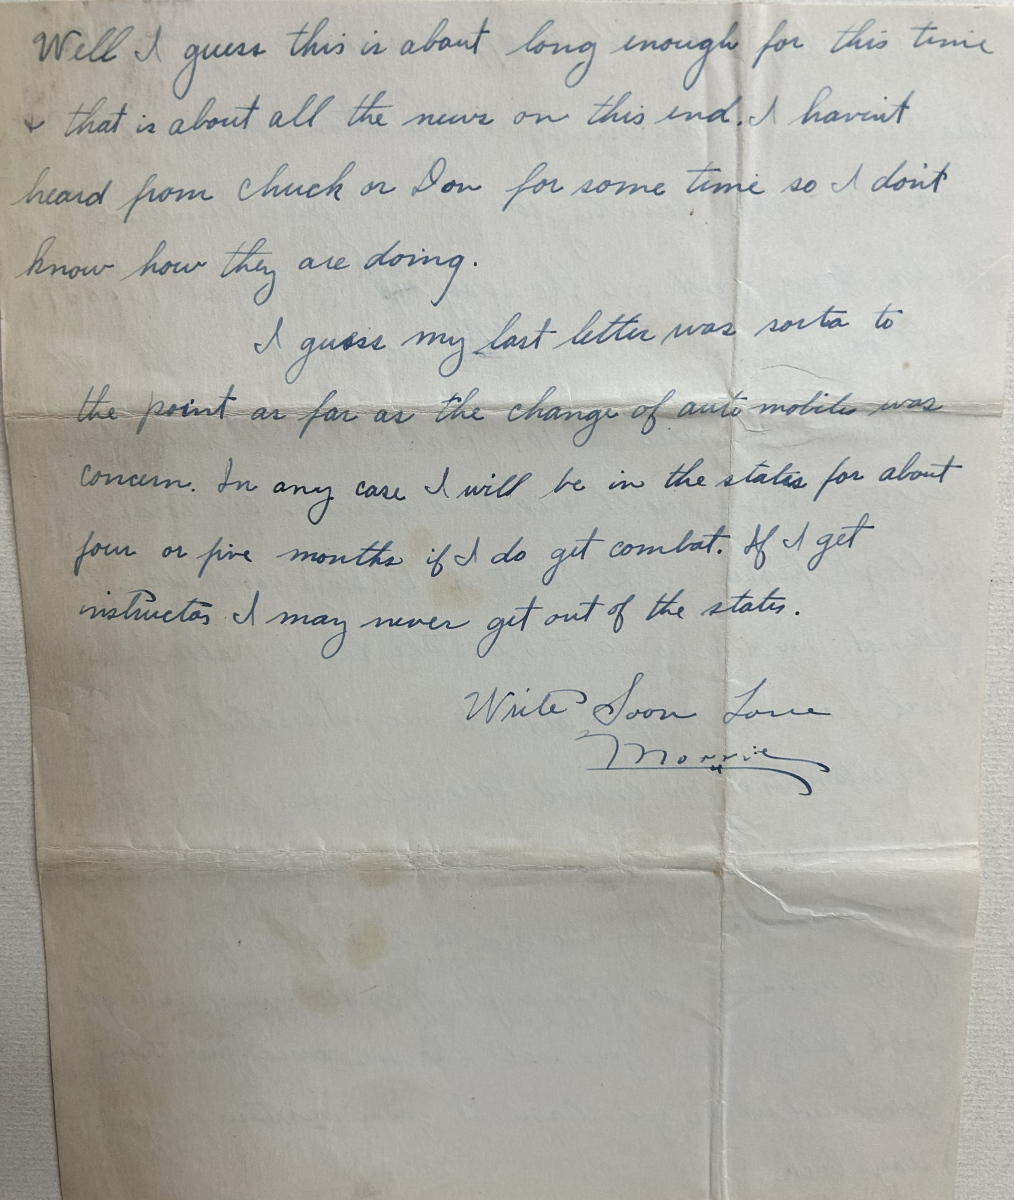 Well I guess this is about long enough for this time
+ that is about all the news on this end. I havin't
heard from Chuck or Don for some time so I don't
know how they are doing.
I guess my last letter was sorta to
the point as far as the change of auto mobile was
concern. In any case I will be in the states for about
four or five months if I do get combat. If I get
instructor I may never get out of the states.
Write Soon Love
Morrie